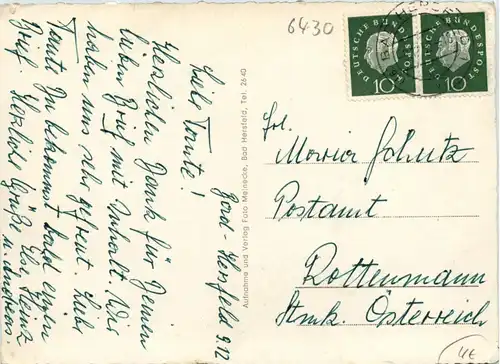 6430
DEUTSCHE BUNDESPOST
10
DEUTSCHE BUNDESPOST
10
BAD HERSFELD
Bad-Hersfeld 9.12
Liebe Tante!
Herzlichen Dank für Deinen
lieben Brief mit Inhalt. Wir
haben uns sehr gefreut. Liebe
Tante Du bekommst bald einen
Brief. Herzliche Grüße Else, Heinz
u. Andreas
Aufnahme und Verlag Foto Meinecke, Bad Hersfeld, Tel. 2640
Frl.
Maria Schutz
Postamt
Rottenmann
Stmk. Österreich
4€